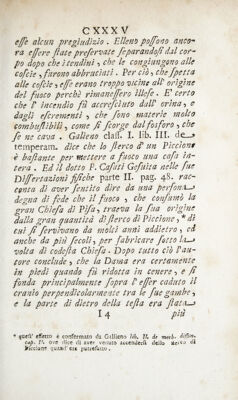 CXXXV
esse alcun pregiudizio. Elleno possono anco-
ra essere state preservate separandosi dal cor-
po dopo che i tendini, che le congiungono alle
coscie, furono abbruciati. Per ciò, che spetta
alle coscie, esse erano troppo vicine all' origine
del fuoco perchè rimanessero illese. E' certo
che l' incendio fù accresciuto dall' orina, e
dagli escrementi, che sono materie molto
combustibili, come si scorge dal fosforo, che
se ne cava. Galleno class. I. lib. III. de
temperam. dice che lo sterco d' un Piccione
è bastante per mettere a fuoco una casa in-
tera. Ed il dotto P. Casati Gesuita nelle sue
Dissertazioni fisiche parte II. pag. 48. rac-
conta di aver sentito dire da una persona
degna di fede che il fuoco, che consumò la
gran Chiesa di Pisa, traeva la sua origine
dalla gran quantità di sterco di Piccione, * di
cui si servivano da molti anni addietro, ed
anche da più secoli, per fabricare sotto la
volta di codesta Chiesa. Dopo tutto ciò l'au-
tore conclude, che la Dama era certamente
in piedi quando fù ridotta in cenere, e si
fonda principalmente sopra l' esser caduto il
cranio perpendicolarmente tra le sue gambe,
e la parte di dietro della testa era stata
I 4 più
* quest' effetto è confermato da Galleno lib. II. de morb. differ.
cap. II. ove dice di aver veduto accendersi dello sterco di
Piccione quand' era putrefatto.